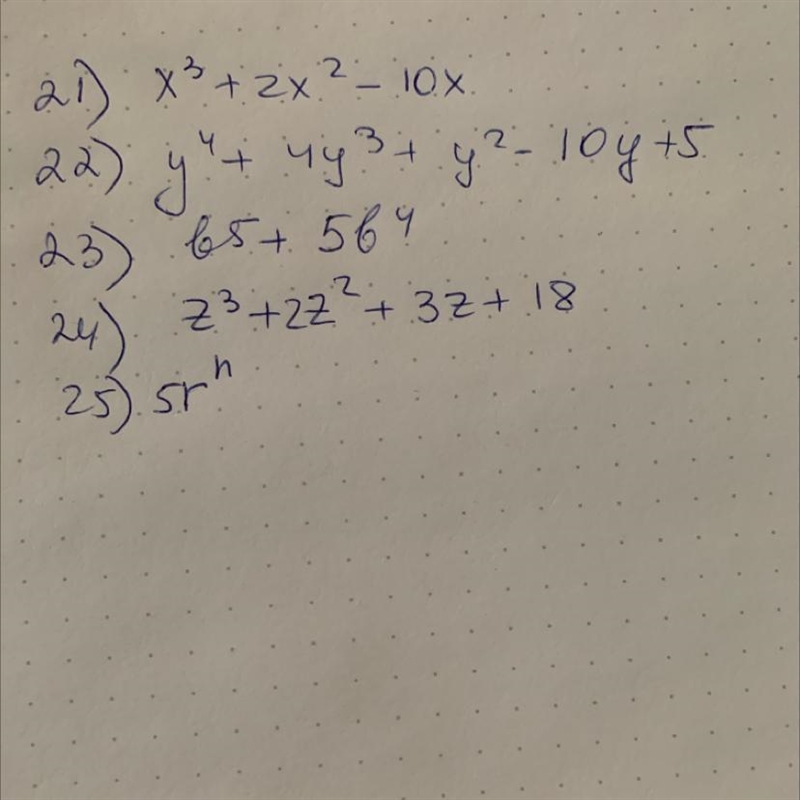 21) x³ + 2x² - 10x
22) y⁴ + 4y³ + y² - 10y + 5
23) b5 + 5b⁴
24) z³ + 2z² + 3z + 18
25) 5rⁿ